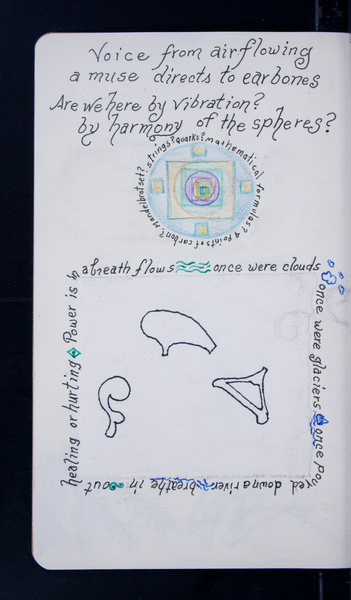 Voice from airflowing
a muse directs to earbones
Are we here by vibration?
by harmony of the spheres?
strings? quarks? mathematical formulas? 4 points of carbon? Mandelbrot set?
a breath flows once were clouds
once were glaciers once poured down a river breathe in out
healing or hurting Power is in